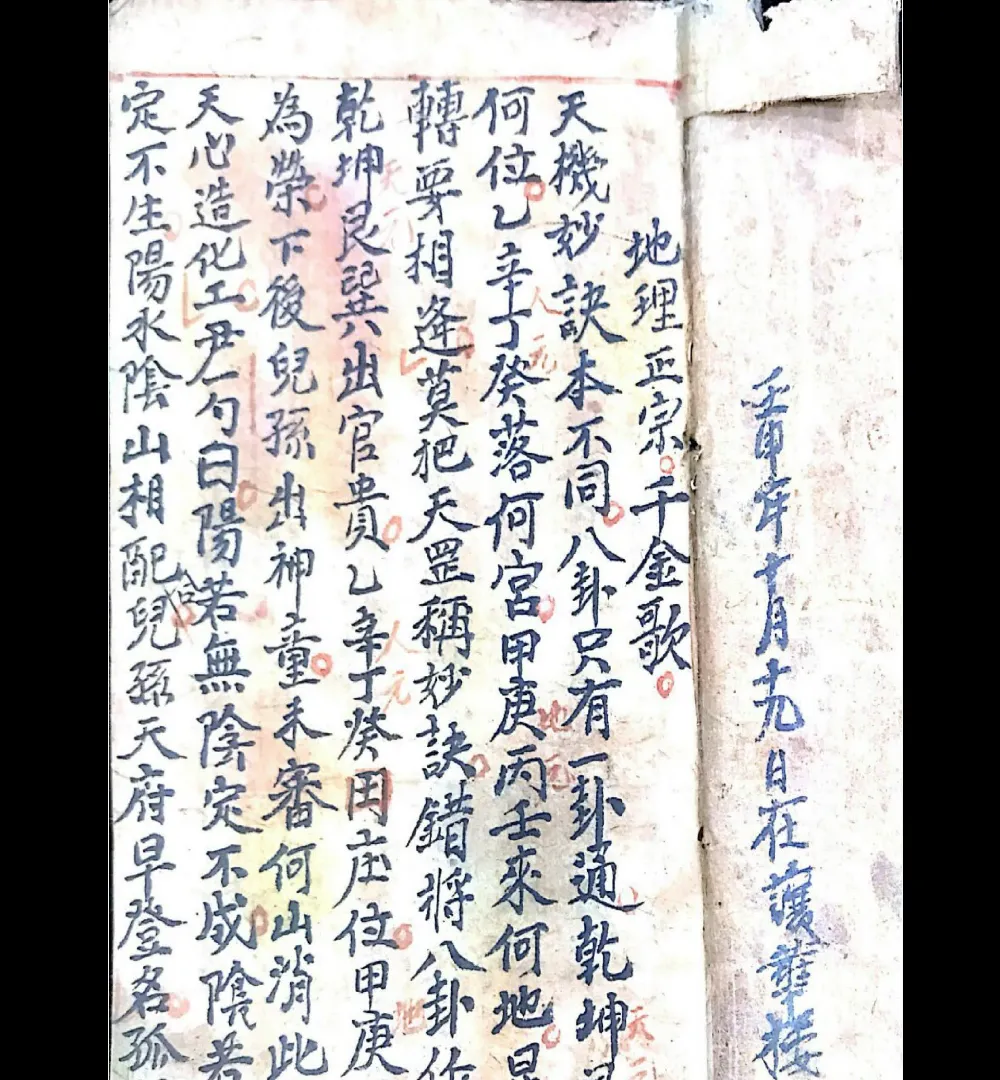 壬申年十月十九日在護華楼
地理正宗千金歌
天機妙訣本不同八卦只有一卦通乾坤艮
何位乙辛丁癸落何宮甲庚丙壬來何地星
轉要相逢莫把天罡稱妙訣錯將八卦作
乾坤艮巽出官貴乙辛丁癸田庄位甲庚
為榮下後兒孫出神童未審何山消此
天心造化工尹一勺曰陽若無陰定不成陰若
定不生陽水陰山相配合兒孫天府早登名孤
人元
地元
天元
天元
人元
地